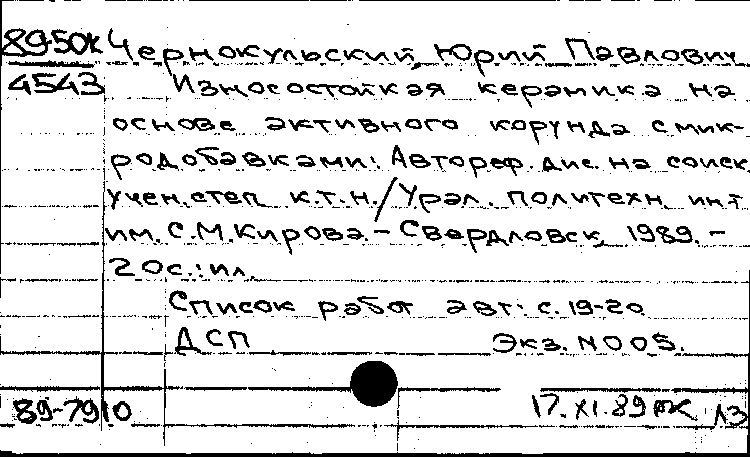 89-50к Чернокульский, Юрий Павлович
4543 Износостойкая керамика на
основе активного корунда с мик-
родобавками: Автореф. дис. на соиск.
учен. степ. к.т.н./Урал. политехн. ин-т
им. С.М.Кирова.- Свердловск, 1989.-
20с.: ил.
Список работ авт.: с. 19-20
ДСП Экз. N005.
89-7910 17.XI.89